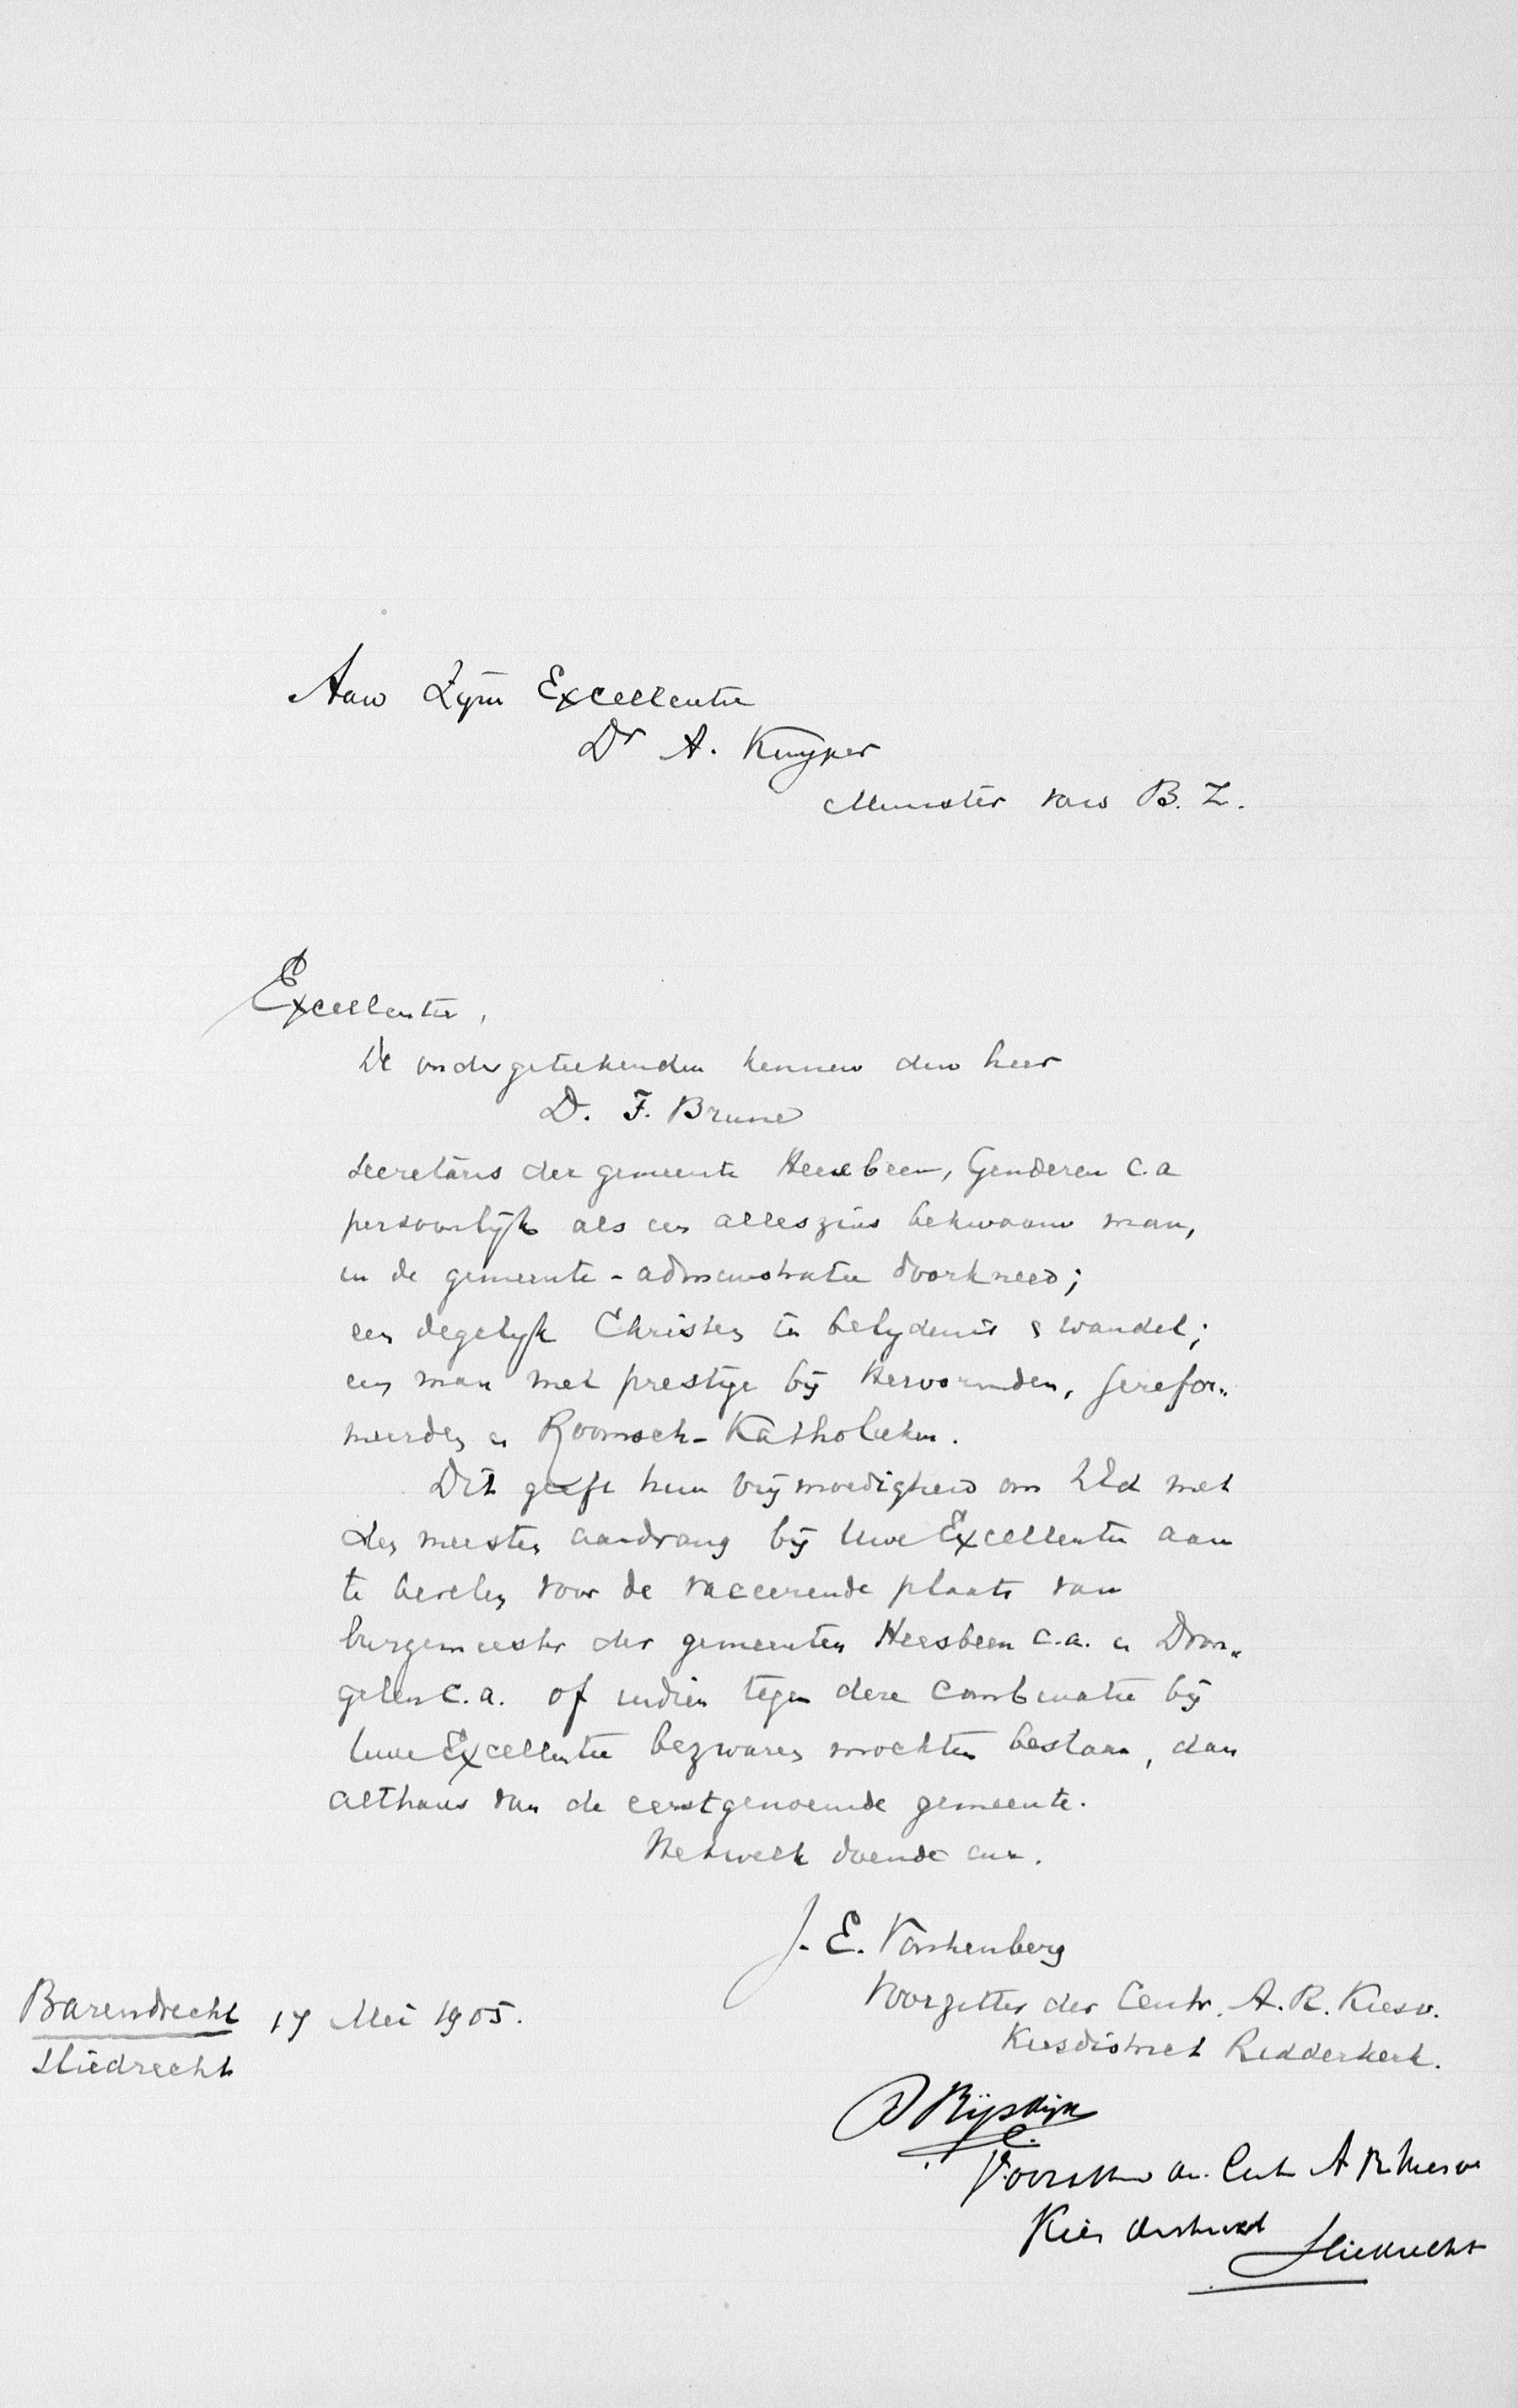 Aan Zijne Excellentie
Dr A. Kuyper
Minister van B. Z.
Excellentie,
De ondergeteekenden kennen den heer
D. F. Brune
secretaris der gemeente Heesbeen, Genderen c.a
persoonlijk als een alleszins bekwaam man,
in de gemeente-administratie doorkneed;
een degelijk Christen in belydenis & wandel;
een man met prestige bij Hervormden, Gerefor„
meerden en Roomsch-Katholieken.
Dit geeft hun vrijmoedigheid om UEd met
den meesten aandrang bij Uwe Excellentie aan
te bevelen voor de vaceerende plaats van
burgemeester der gemeenten Heesbeen c.a. en Dron„
gelen c.a. of indien tegen deze combinatie bij
Uwe Excellentie bezwaren mochten bestaan, dan
althans van de eerstgenoemde gemeente.
Hetwelk doende enz.
J. E. Vonkenberg
Voorzitter der Centr. A. R. Kiesv.
Kiesdistrict Ridderkerk.
Barendrecht 17 Mei 1905.
Sliedrecht
Rijsdijk
Voorzitter Centr A R Kiesv
Kies district Sliedrecht